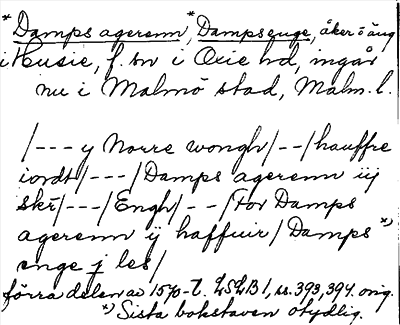 *Damps agerenn, *Dampsenge, åker o äng
i Husie, f. sn i Oxie hd, ingår
nu i Malmö stad, Malm. l.
/--- y Norre wongh/--/hauffre
iordt/---/Damps agerenn iij
skr/---/Engh/--/For Damps
agerenn ij haffuir/Damps *)
enge j les/
förra delen av 1570-t. LSLB 1, ss. 393, 394. orig.
*) Sista bokstaven otydlig.